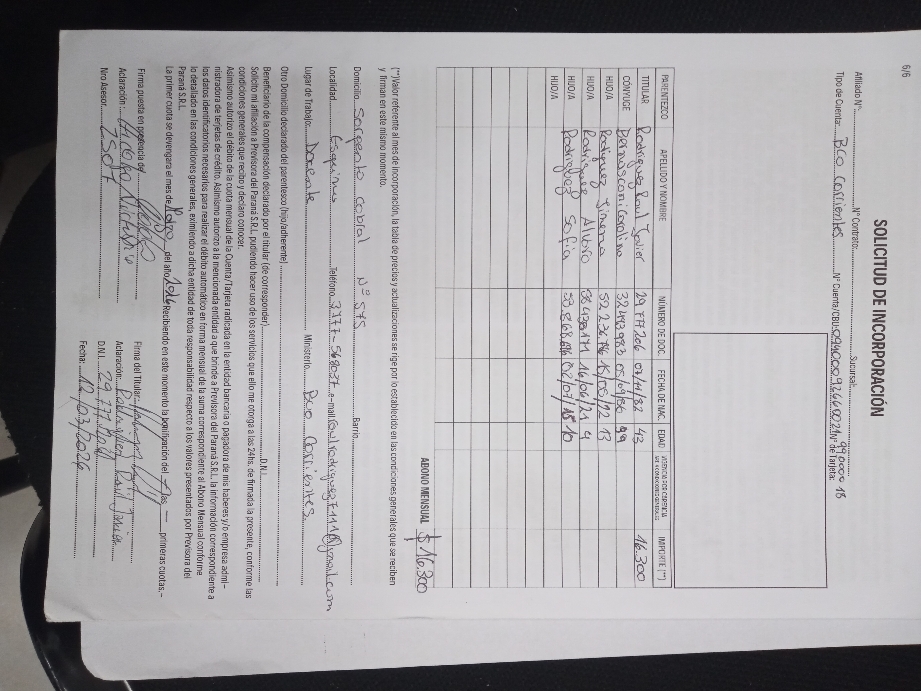 6/6
SOLICITUD DE INCORPORACIÓN
Afiliado Nº: Nº Contrato: Sucursal:
Tipo de Cuenta: Bco Corrientes Nº Cuenta/CBU: Nº de Tarjeta:
PARENTEZCO APELLIDO Y NOMBRE NÚMERO DE DOC. FECHA DE NAC. EDAD VIGENCIA POR CARENCIA IMPORTE (**)
TITULAR Rodriguez Raul Javier 29.777.206 43 16.300
CONYUGE Bernasconi Carolina
HIJO/A Rodriguez Jimena 13
HIJO/A Rodriguez Alvaro 16/06/21 4
HIJO/A Rodriguez Sofia
HIJO/A
ABONO MENSUAL $ 16.300
(**)Valor referente al mes de incorporación, la tabla de precios y actualizaciones se rige por lo establecido en las condiciones generales que se reciben
y firman en este mismo momento.
Domicilio: Sargento Cabral Nº 575 Barrio:
Localidad: Esquina Teléfono: 3777- e-mail:
Lugar de Trabajo: Docente Ministerio: Bco Corrientes
Otro Domicilio declarado del parentesco (hijo/adherente)
Beneficiario de la compensación declarado por el titular (de corresponder) D.N.I.
Solicito mi afiliación a Previsora del Paraná S.R.L. pudiendo hacer uso de los servicios que ello me otorga a las 24hs. de firmada la presente, conforme las
condiciones generales que recibo y declaro conocer.
Asimismo autorizo el débito de la cuota mensual de la Cuenta/Tarjeta radicada en la entidad bancaria o pagadora de mis haberes y/o empresa admi-
nistradora de tarjetas de crédito. Asimismo autorizo a la mencionada entidad a que brinde a Previsora del Paraná S.R.L. la información correspondiente a
los datos identificatorios necesarios para realizar el débito automático en forma mensual de la suma correspondiente al Abono Mensual conforme
lo detallado en las condiciones generales, eximiendo a dicha entidad de toda responsabilidad respecto a los valores presentados por Previsora del
Paraná S.R.L.
La primer cuota se devengara el mes de Marzo del año 2026 Recibiendo en este momento la bonificación del las primeras cuotas.-
Firma puesta en presencia de: Firma del Titular:
Aclaración: Aclaración: Rodriguez Raul Javier
Nro Asesor: D.N.I. 29.777.206
Fecha: 12/03/2026